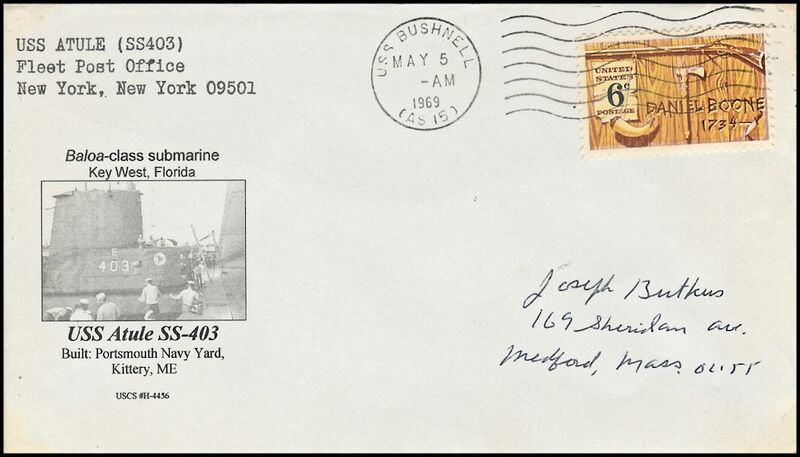 USS ATULE (SS403)
Fleet Post Office
New York, New York 09501
USS BUSHNELL
MAY 5
-AM
1969
(AS 15)
UNITED
STATES
6c
POSTAGE
DANIEL BOONE
1734
Baloa-class submarine
Key West, Florida
E
403
USS Atule SS-403
Built: Portsmouth Navy Yard,
Kittery, ME
USCS #H-4456
Joseph Butkus
169 Sheridan av.
Medford, Mass. 02155